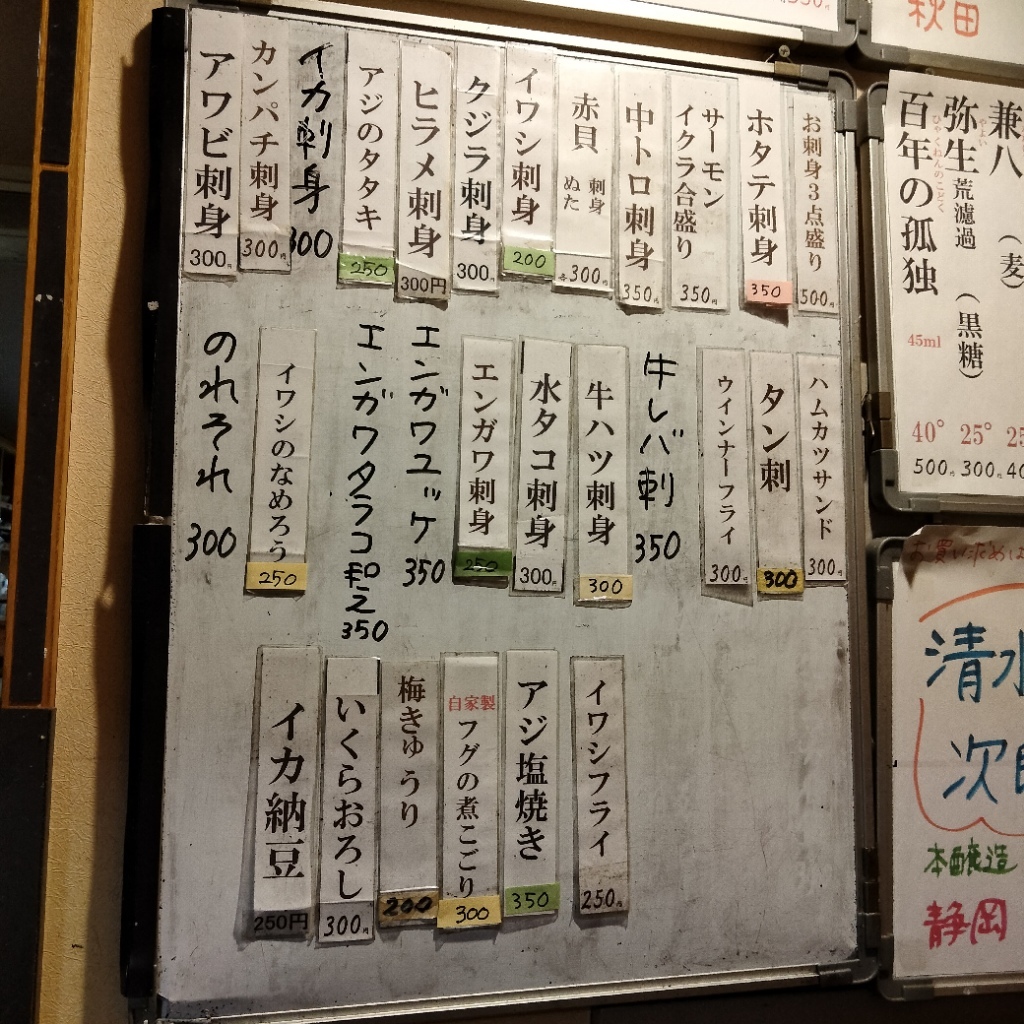 お刺身3点盛り 500円
ホタテ刺身 350
サーモン
イクラ合盛り 350円
中トロ刺身 350円
赤貝 刺身 ぬた 各300円
イワシ刺身 200
クジラ刺身 300円
ヒラメ刺身 300円
アジのタタキ 250
イカ刺身 300
カンパチ刺身 300円
アワビ刺身 300円
ハムカツサンド 300円
タン刺 300
ウインナーフライ 300円
牛レバ刺 350
牛ハツ刺身 300
水タコ刺身 300円
エンガワ刺身 250
エンガワユッケ 350
エンガワタラコ和え 350
イワシのなめろう 250
のれそれ 300
イワシフライ 250円
アジ塩焼き 350
自家製 フグの煮こごり 300
梅きゅうり 200
いくらおろし 300円
イカ納豆 250円
秋田
兼八 (麦)
弥生 荒濾過 (黒糖) 25° 300円
やよい
百年の孤独 45ml 40° 500円
ひゃくねんのこどく
お買い求め
清水
次
本醸造
静岡